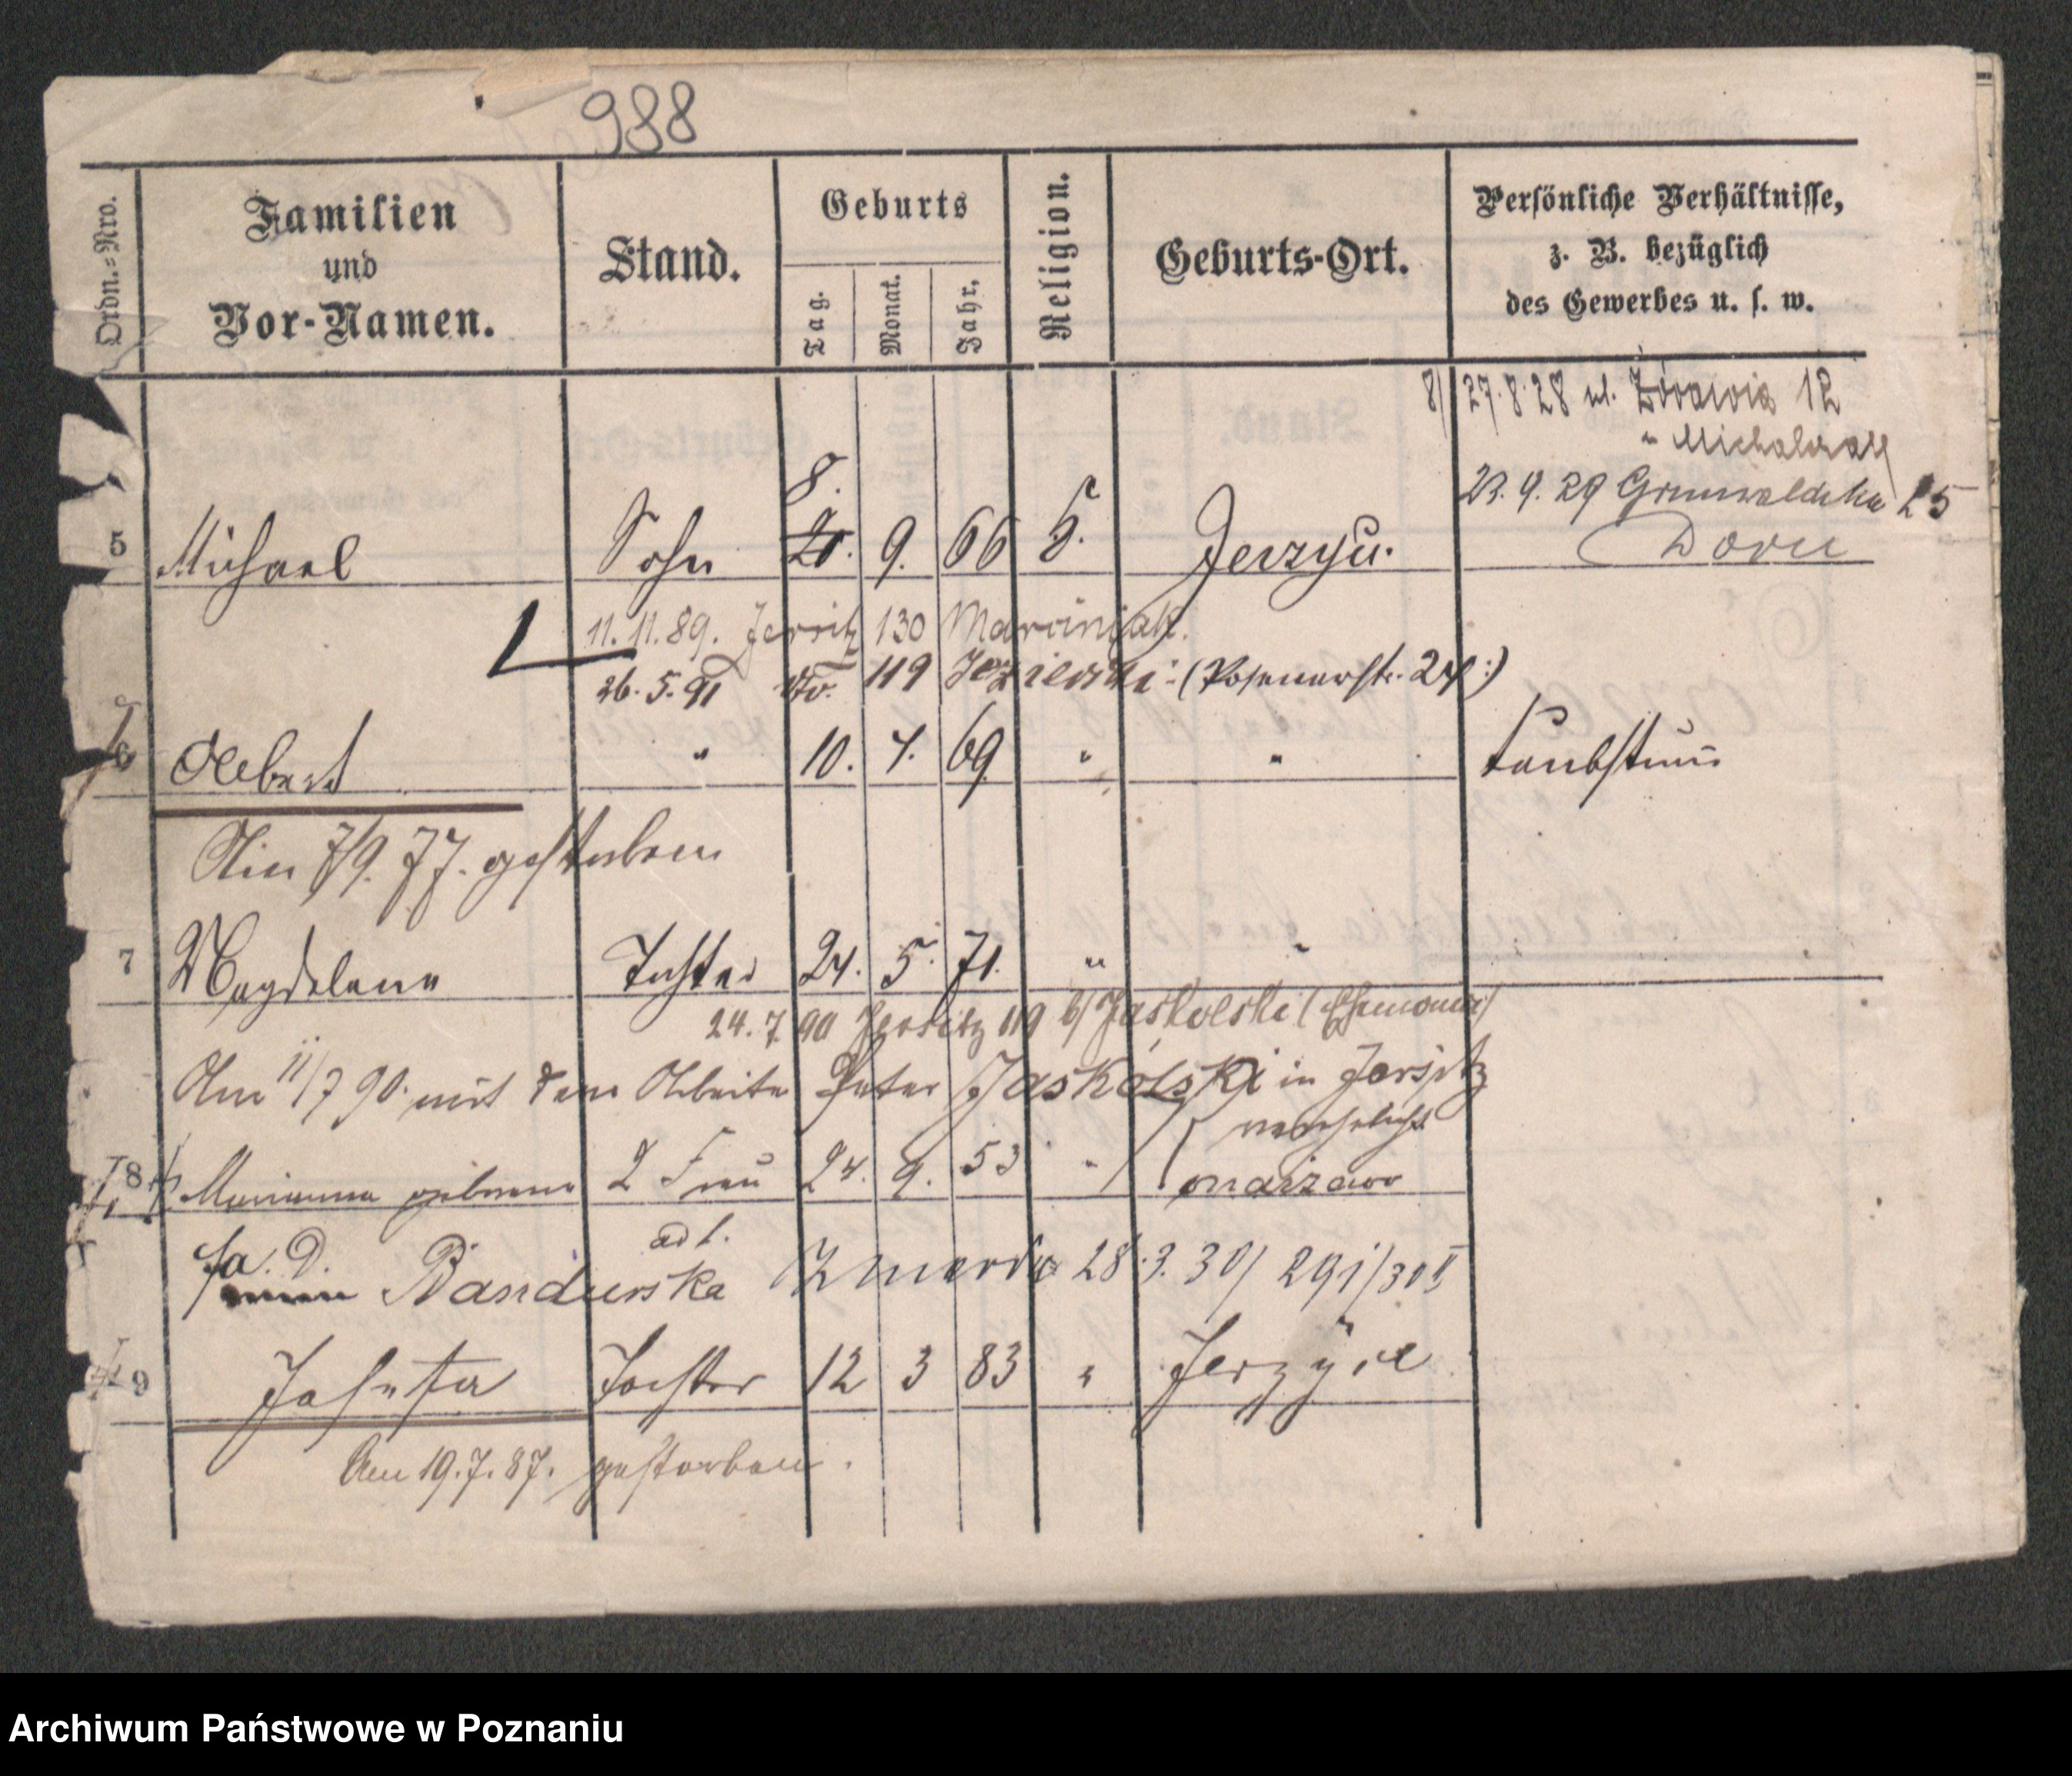 988
Ordn.-Nro.
Familien
und
Vor-Namen.
Stand.
Geburts
Tag.
Monat.
Jahr.
Religion.
Geburts-Ort.
Persönliche Verhältnisse,
z. B. bezüglich
des Gewerbes u. s. w.
27.8.28 ul. Żórawia 12
" Michalczak
23.9.29 Grunwaldzka 25
8.
5 Michael Sohn 9. 66 Jerzyc.
11.11.89. Jersitz 130 Marciniak.
26.5.91 do. 119 (Posenerstr. 24:)
6 Albert " 10. 4. 69 " " taubstum̄
Am 7/9. 77. gestorben
7 Magdelena Tochter 24. 5. 71. " "
24.7.90 Jersitz 119 b/ Jaskolski (Ehemann)
Am 11/7 90. mit dem Arbeiter Peter Jaskólski in Jersitz
verehelicht
8 Marianna geborene 2 Frau 24. 9. 53 "
adl.
Bandurska Zmarła 28.3.30/ 291/30 II
9 Tochter 12 3 83 " Jerzyce
Am 19.7.87. gestorben.
Archiwum Państwowe w Poznaniu